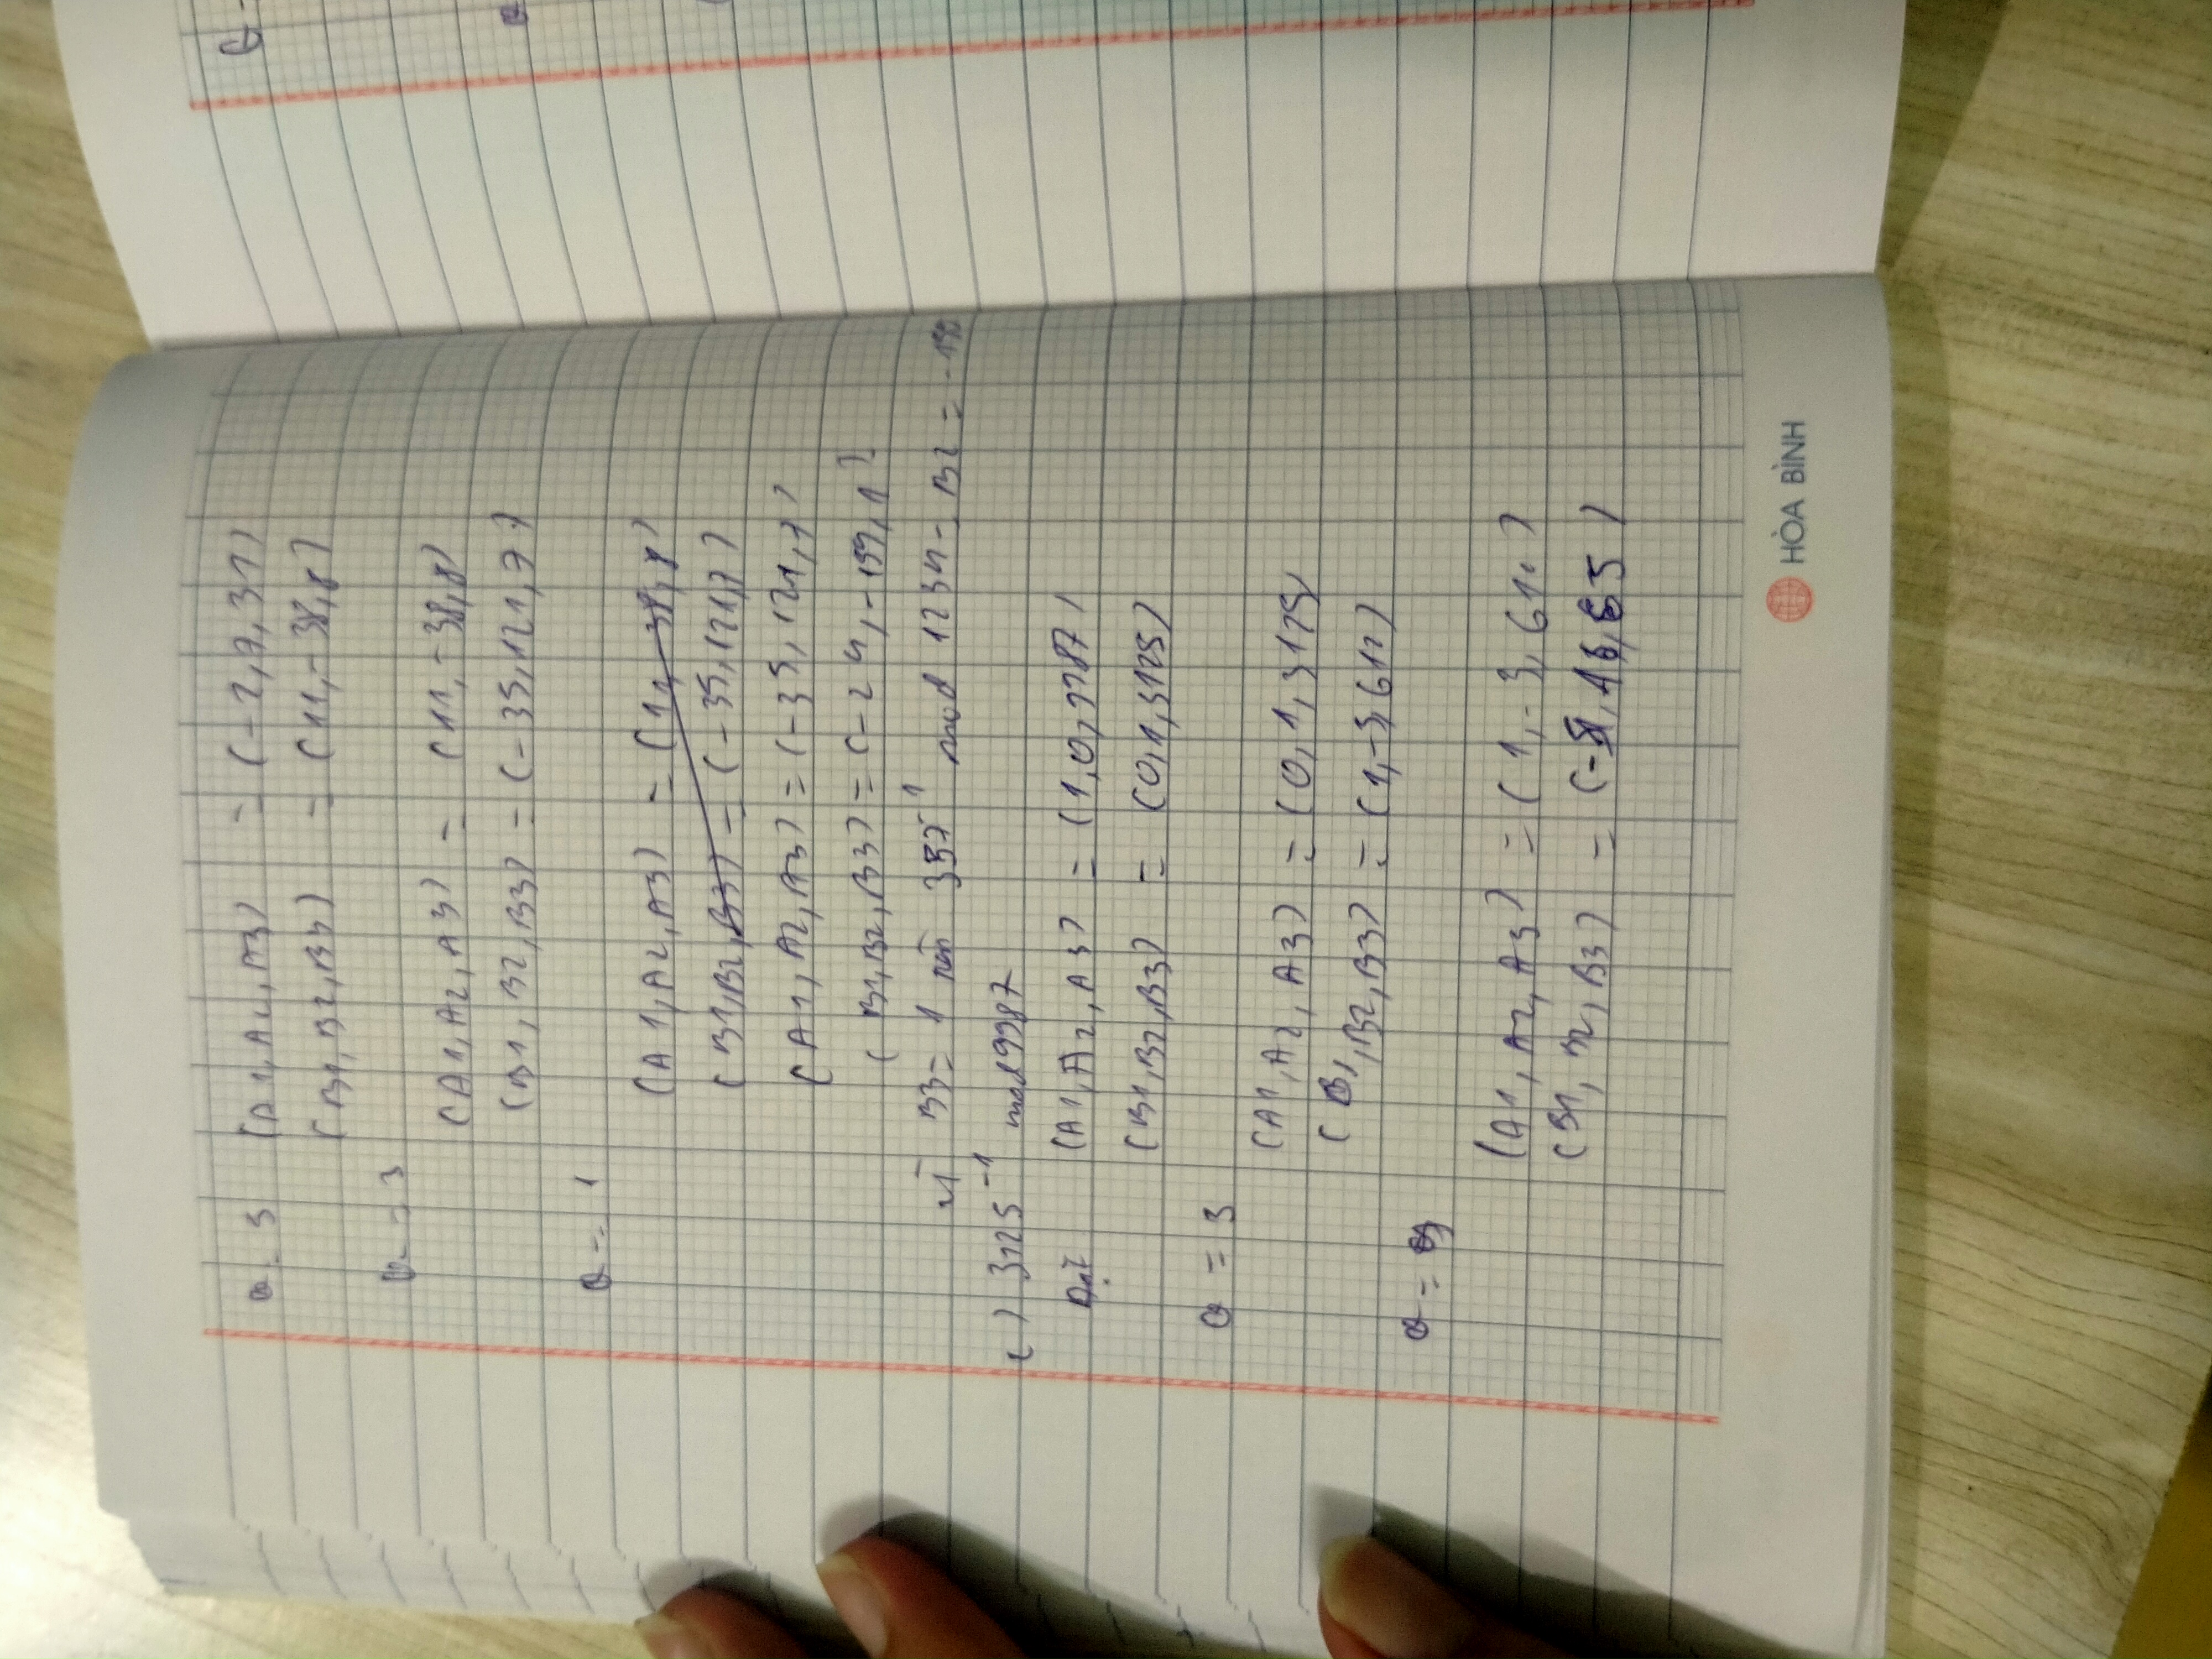 Q = 5 (A1, A2, A3) = (-2, 7, 31)
(B1, B2, B3) = (11, -38, 8)
Q = 3
(A1, A2, A3) = (11, -38, 8)
(B1, B2, B3) = (-35, 121, 7)
Q = 1
(A1, A2, A3) = (11, -38, 8)
(B1, B2, B3) = (-35, 121, 7)
(A1, A2, A3) = (-35, 121, 7)
(B1, B2, B3) = (-24, -159, 1)
Vì B3 = 1 nên 357⁻¹ mod 1234 = B2 =
c) 3125⁻¹ mod 9987
Đặt (A1, A2, A3) = (1, 0, 9987)
(B1, B2, B3) = (0, 1, 3125)
Q = 3
(A1, A2, A3) = (0, 1, 3125)
(B1, B2, B3) = (1, -3, 612)
Q =
(A1, A2, A3) = (1, -3, 612)
(B1, B2, B3) = (-5, 16, 65)
HÒA BÌNH